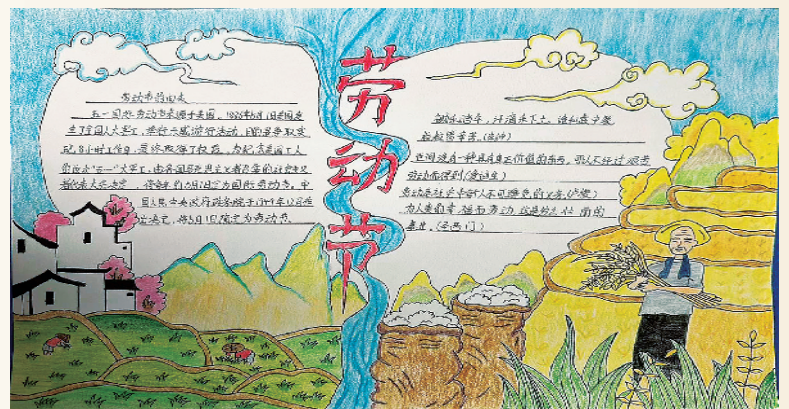 劳动节
劳动节的由来
五一国际劳动节来源于美国，1886年5月1日美国发
生了全国人大罢工，举行示威游行活动，目的是争取实
现8小时工作日，最终取得了权益。为纪念美国工人
们的这次"五一"大罢工，由各国马克思主义者召集的社会主义
者代表大会决定，将每年的5月1日定为国际劳动节。中
国人民中央政府政务院于1949年12月作
出决定，将5月1日确定为劳动节。
锄禾日当午，汗滴禾下土。谁知盘中餐
粒粒皆辛苦。(李绅)
世间没有一种具有真正价值的东西，可以不经过艰苦
劳动而得到(爱迪生)
劳动是社会中每个人不可避免的义务(卢梭)
为人类的幸福而劳动，这是多么壮丽的
事业，(圣西门)